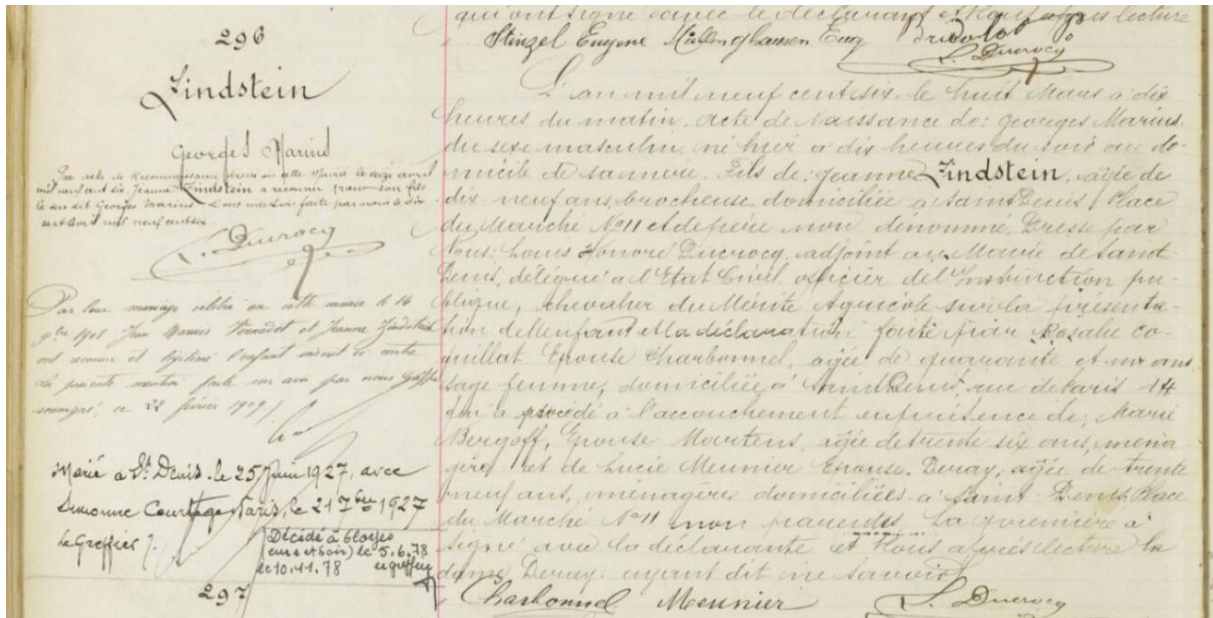 296
Lindstein
Georges Marius
Par acte de Reconnaissance dressé en cette Mairie le seize avril
mil neuf cent six, Jeanne Lindstein a reconnu pour son fils
le sus dit Georges Marius. Dont mention faite par nous le dix
sept avril mil neuf cent six
L. Ducrocq
Par leur mariage célébré en cette mairie le 14
9bre 1908 Jean Marius et Jeanne Lindstein
ont reconnu et légitimé l'enfant inscrit ci contre
La présente mention faite sur avis par nous Greffier
soussigné, ce 22 février 1909
Marié à St Denis, le 25 Juin 1927, avec
Simonne Paris, le 21 7bre 1927
Le Greffier
Décédé à
le 5.6.78
le 10.11.78 Le greffier
297
qui ont signé avec le déclarant et Nous après lecture
Stinzel Eugène Eug
L. Ducrocq
L'an mil neuf cent six, le huit Mars à dix
heures du matin. Acte de Naissance de: Georges Marius
du sexe masculin, né hier à dix heures du soir au do-
micile de sa mère. Fils de: Jeanne Lindstein, agée de
dix neuf ans, brocheuse, domiciliée à Saint Denis, Place
du Marché No 11 et de père non dénommé. Dressé par
Nous: Louis Honoré Ducrocq, adjoint au Maire de Saint
Denis, délégué à l'Etat Civil, officier de l'Instruction pu-
blique, chevalier du Mérite Agricole sur la présenta-
tion de l'enfant et la déclaration faite par Rosalie Co-
quillat Epouse Charbonnel, agée de quarante et un ans
sage femme, domiciliée à Saint Denis, rue de Paris 14
qui a procédé à l'accouchement en présence de: Marie
Bergoff, Epouse Martens, agée de trente six ans, ména-
gère et de Lucie Meunier Epouse Deray, agée de trente
neuf ans, ménagère, domiciliées à Saint Denis, Place
du Marché No 11 non parentes. La première a
signé avec la déclarante et Nous après lecture la
dame Deray ayant dit ne savoir
Charbonnel Meunier L. Ducrocq